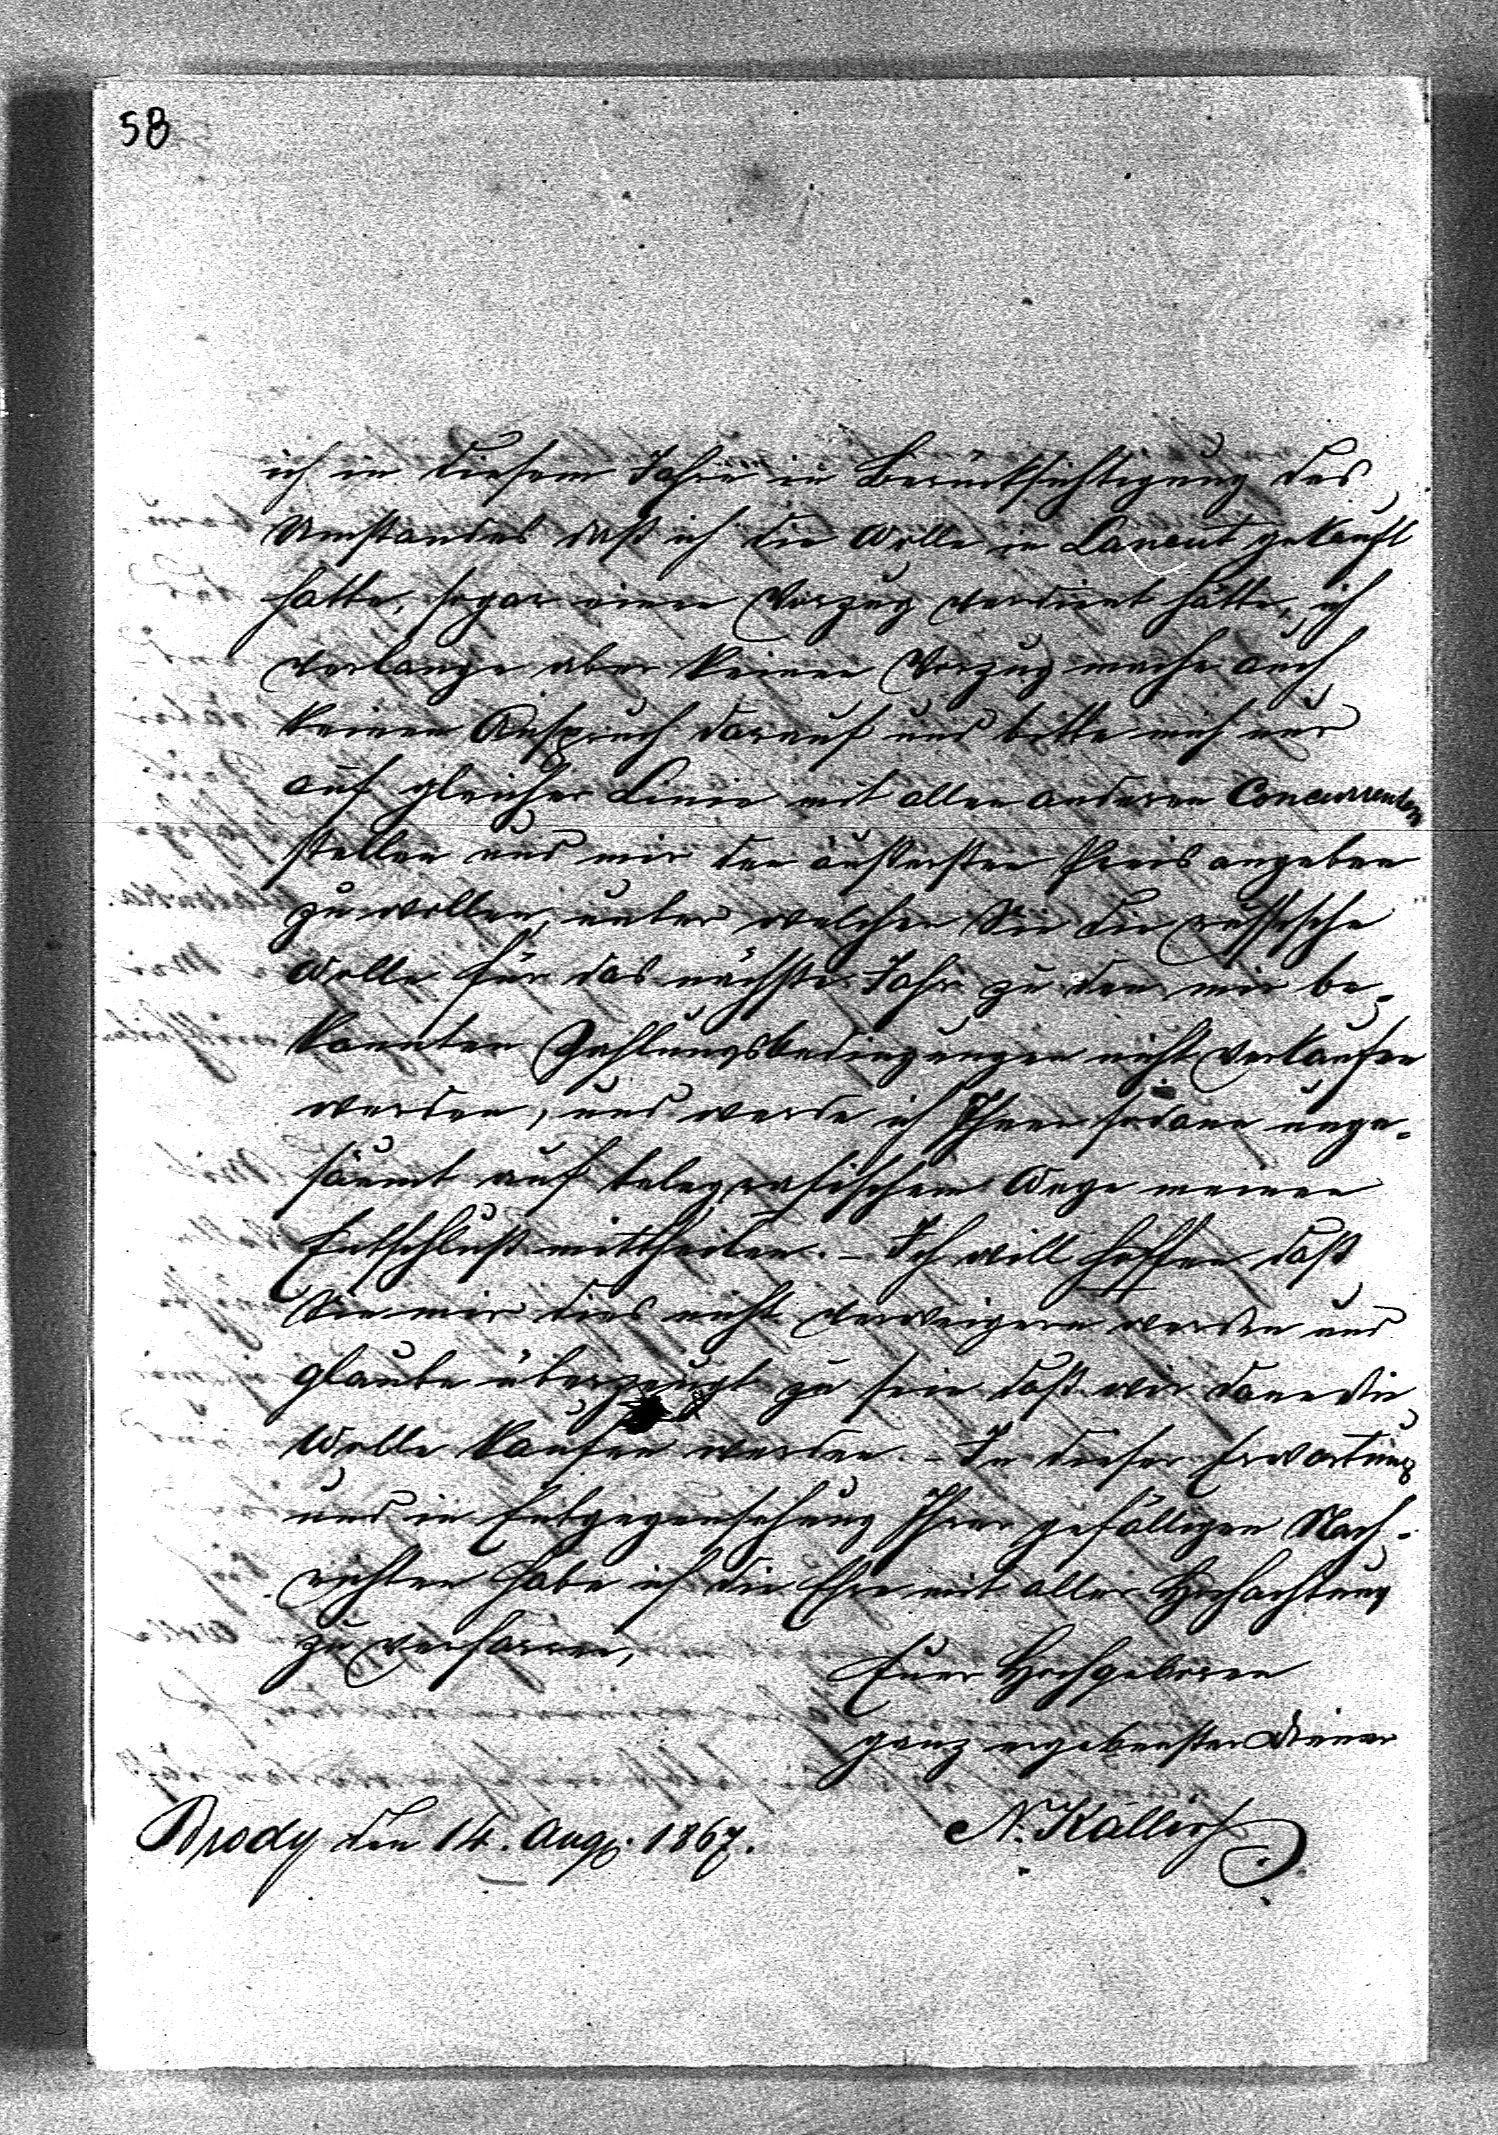 58
ich in diesem Jahre in Berücksichtigung des
Umstandes daß ich die Wolle in Lancut gekauft
hatte, sogar einen Vorzug verdient hätte, ich
verlange aber keinen Vorzug mache auch
keinen Anspruch darauf und bitte mich nur
auf gleicher Linie mit allen anderen Concurrenten
stellen und mir den äußersten Preis angeben
zu wollen, unter welchen Sie die russische
Wolle für das nächste Jahr zu den mir be-
kannten Zahlungsbedingungen nicht verkaufen
werden, und werde ich Ihnen sodann unge-
säumt auf telegrafischem Wege meinen
Entschluß mittheilen. – Ich will hoffen daß
Sie mir dies nicht verweigern werden und
glaube überzeugt zu sein daß wir dann die
Wolle kaufen werden. – In dieser Erwartung
und in Entgegensehung Ihrer gefälligen Nach-
richten habe ich die Ehre mit aller Hochachtung
zu verharren,
Euer Hochgeboren
ganz ergebenster Diener
N. Kallir
Brody den 14. Aug. 1867.